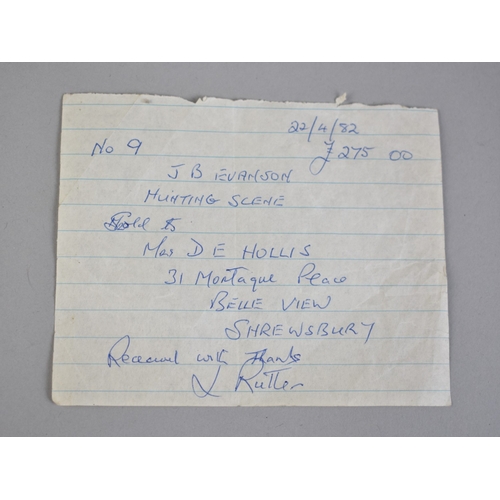 22/4/82
No 9 £ 275 00
J B EVANSON
HUNTING SCENE
Sold to
Mrs D E HOLLIS
31 Montague Place
BELLE VIEW
SHREWSBURY
Received with Thanks
L Rutter